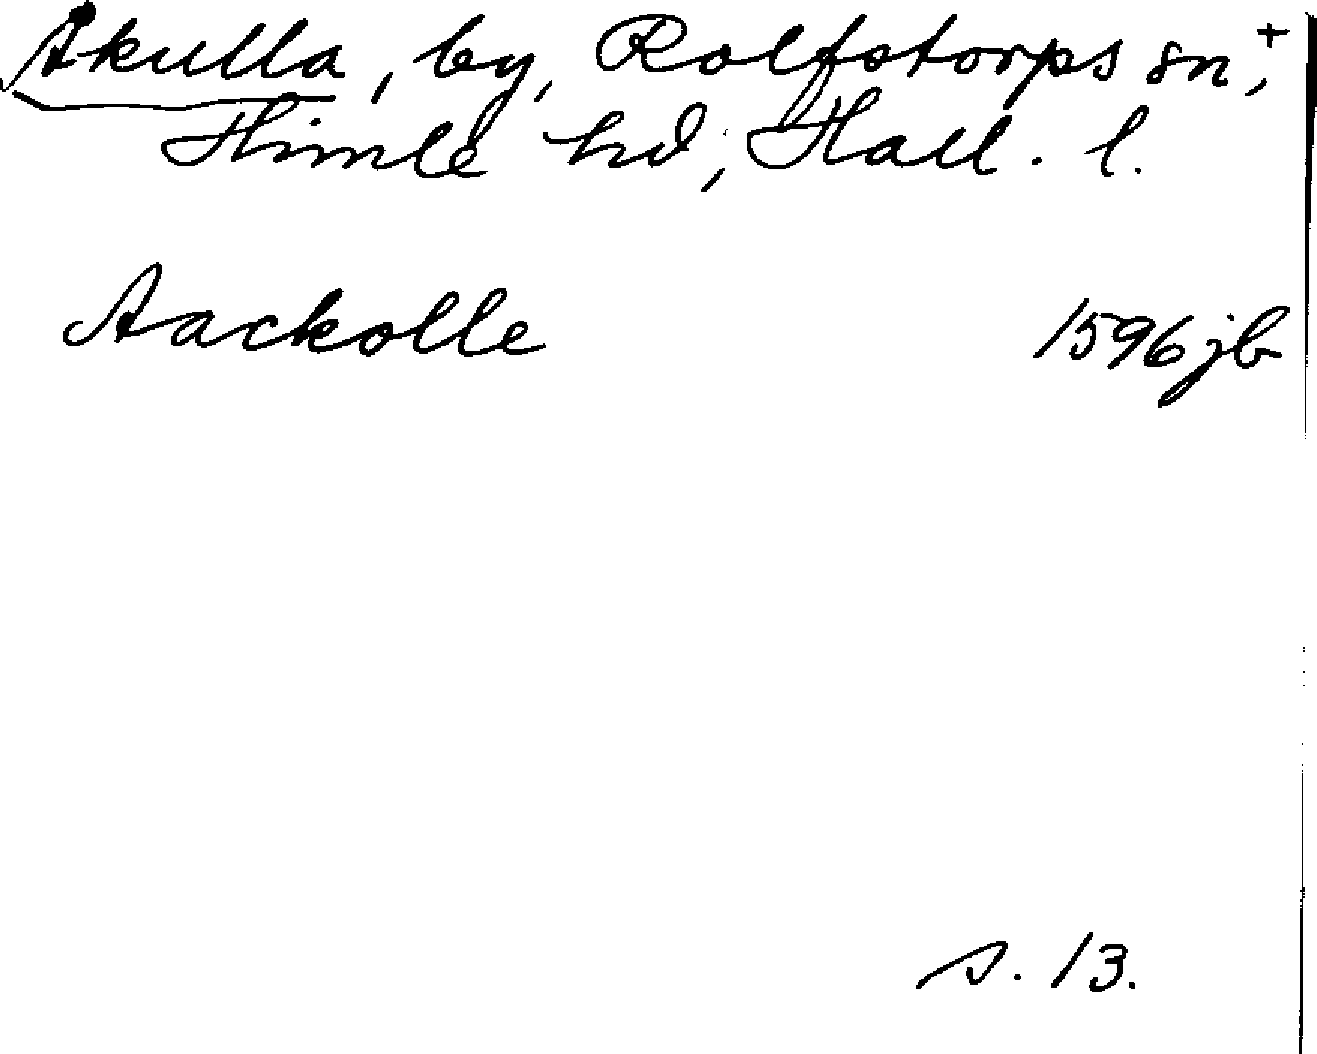 Åkulla, by, Rolfstorps sn,+
Himle hd, Hall. l.
Aackolle 1596 jb
s. 13.